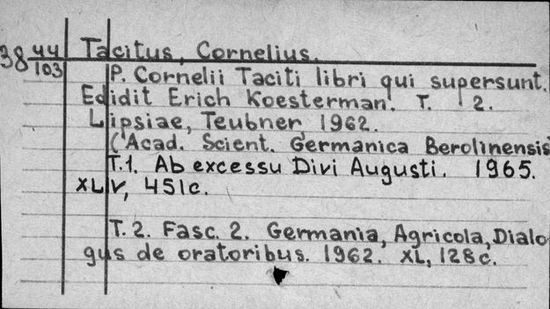 38 44/103 Tacitus, Cornelius.
P. Cornelii Taciti libri qui supersunt.
Edidit Erich Koesterman. T. 2.
Lipsiae, Teubner, 1962.
(Acad. Scient. Germanica Berolinensis
T.1. Ab excessu Divi Augusti. 1965.
XLV, 451c.
T.2. Fasc. 2. Germania, Agricola, Dialo
gus de oratoribus. 1962. XL, 128c.